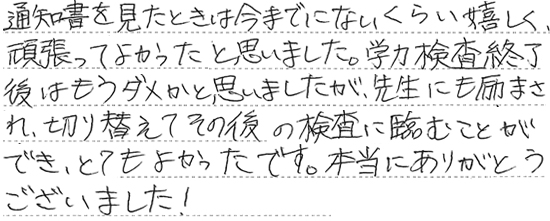 通知書を見たときは今までにないくらい嬉しく、
頑張ってよかったと思いました。学力検査終了
後はもうダメかと思いましたが、先生にも励まさ
れ、切り替えてその後の検査に臨むことが
でき、とてもよかったです。本当にありがとう
ございました!